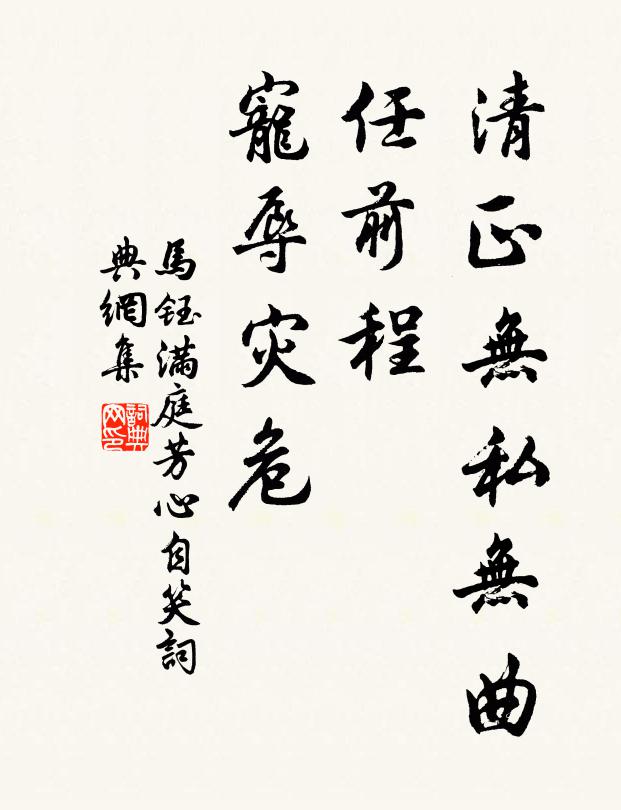 清正無私無曲
任前程
寵辱灾危
馬鈺滿庭芳心自笑詞
典網集
詞典网印